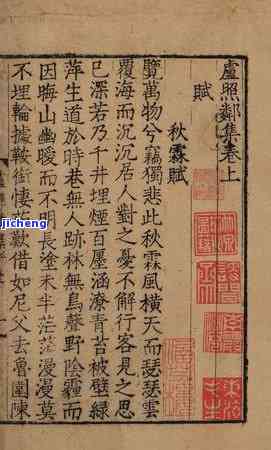 盧照鄰集卷上
賦
秋霖賦
覽萬物兮竊獨悲此秋霖風橫天而瑟瑟雲
覆海而沉沉居人對之憂不解行客見之思
已深若乃千井埋煙百廛涵潦青苔被壁綠
萍生道於時巷無人跡林無鳥聲野陰霾而
因晦山幽曖而不明長塗未半茫茫漫漫莫
不埋輪據鞍銜悽茹歎借如尼父去魯圍陳
jicheng